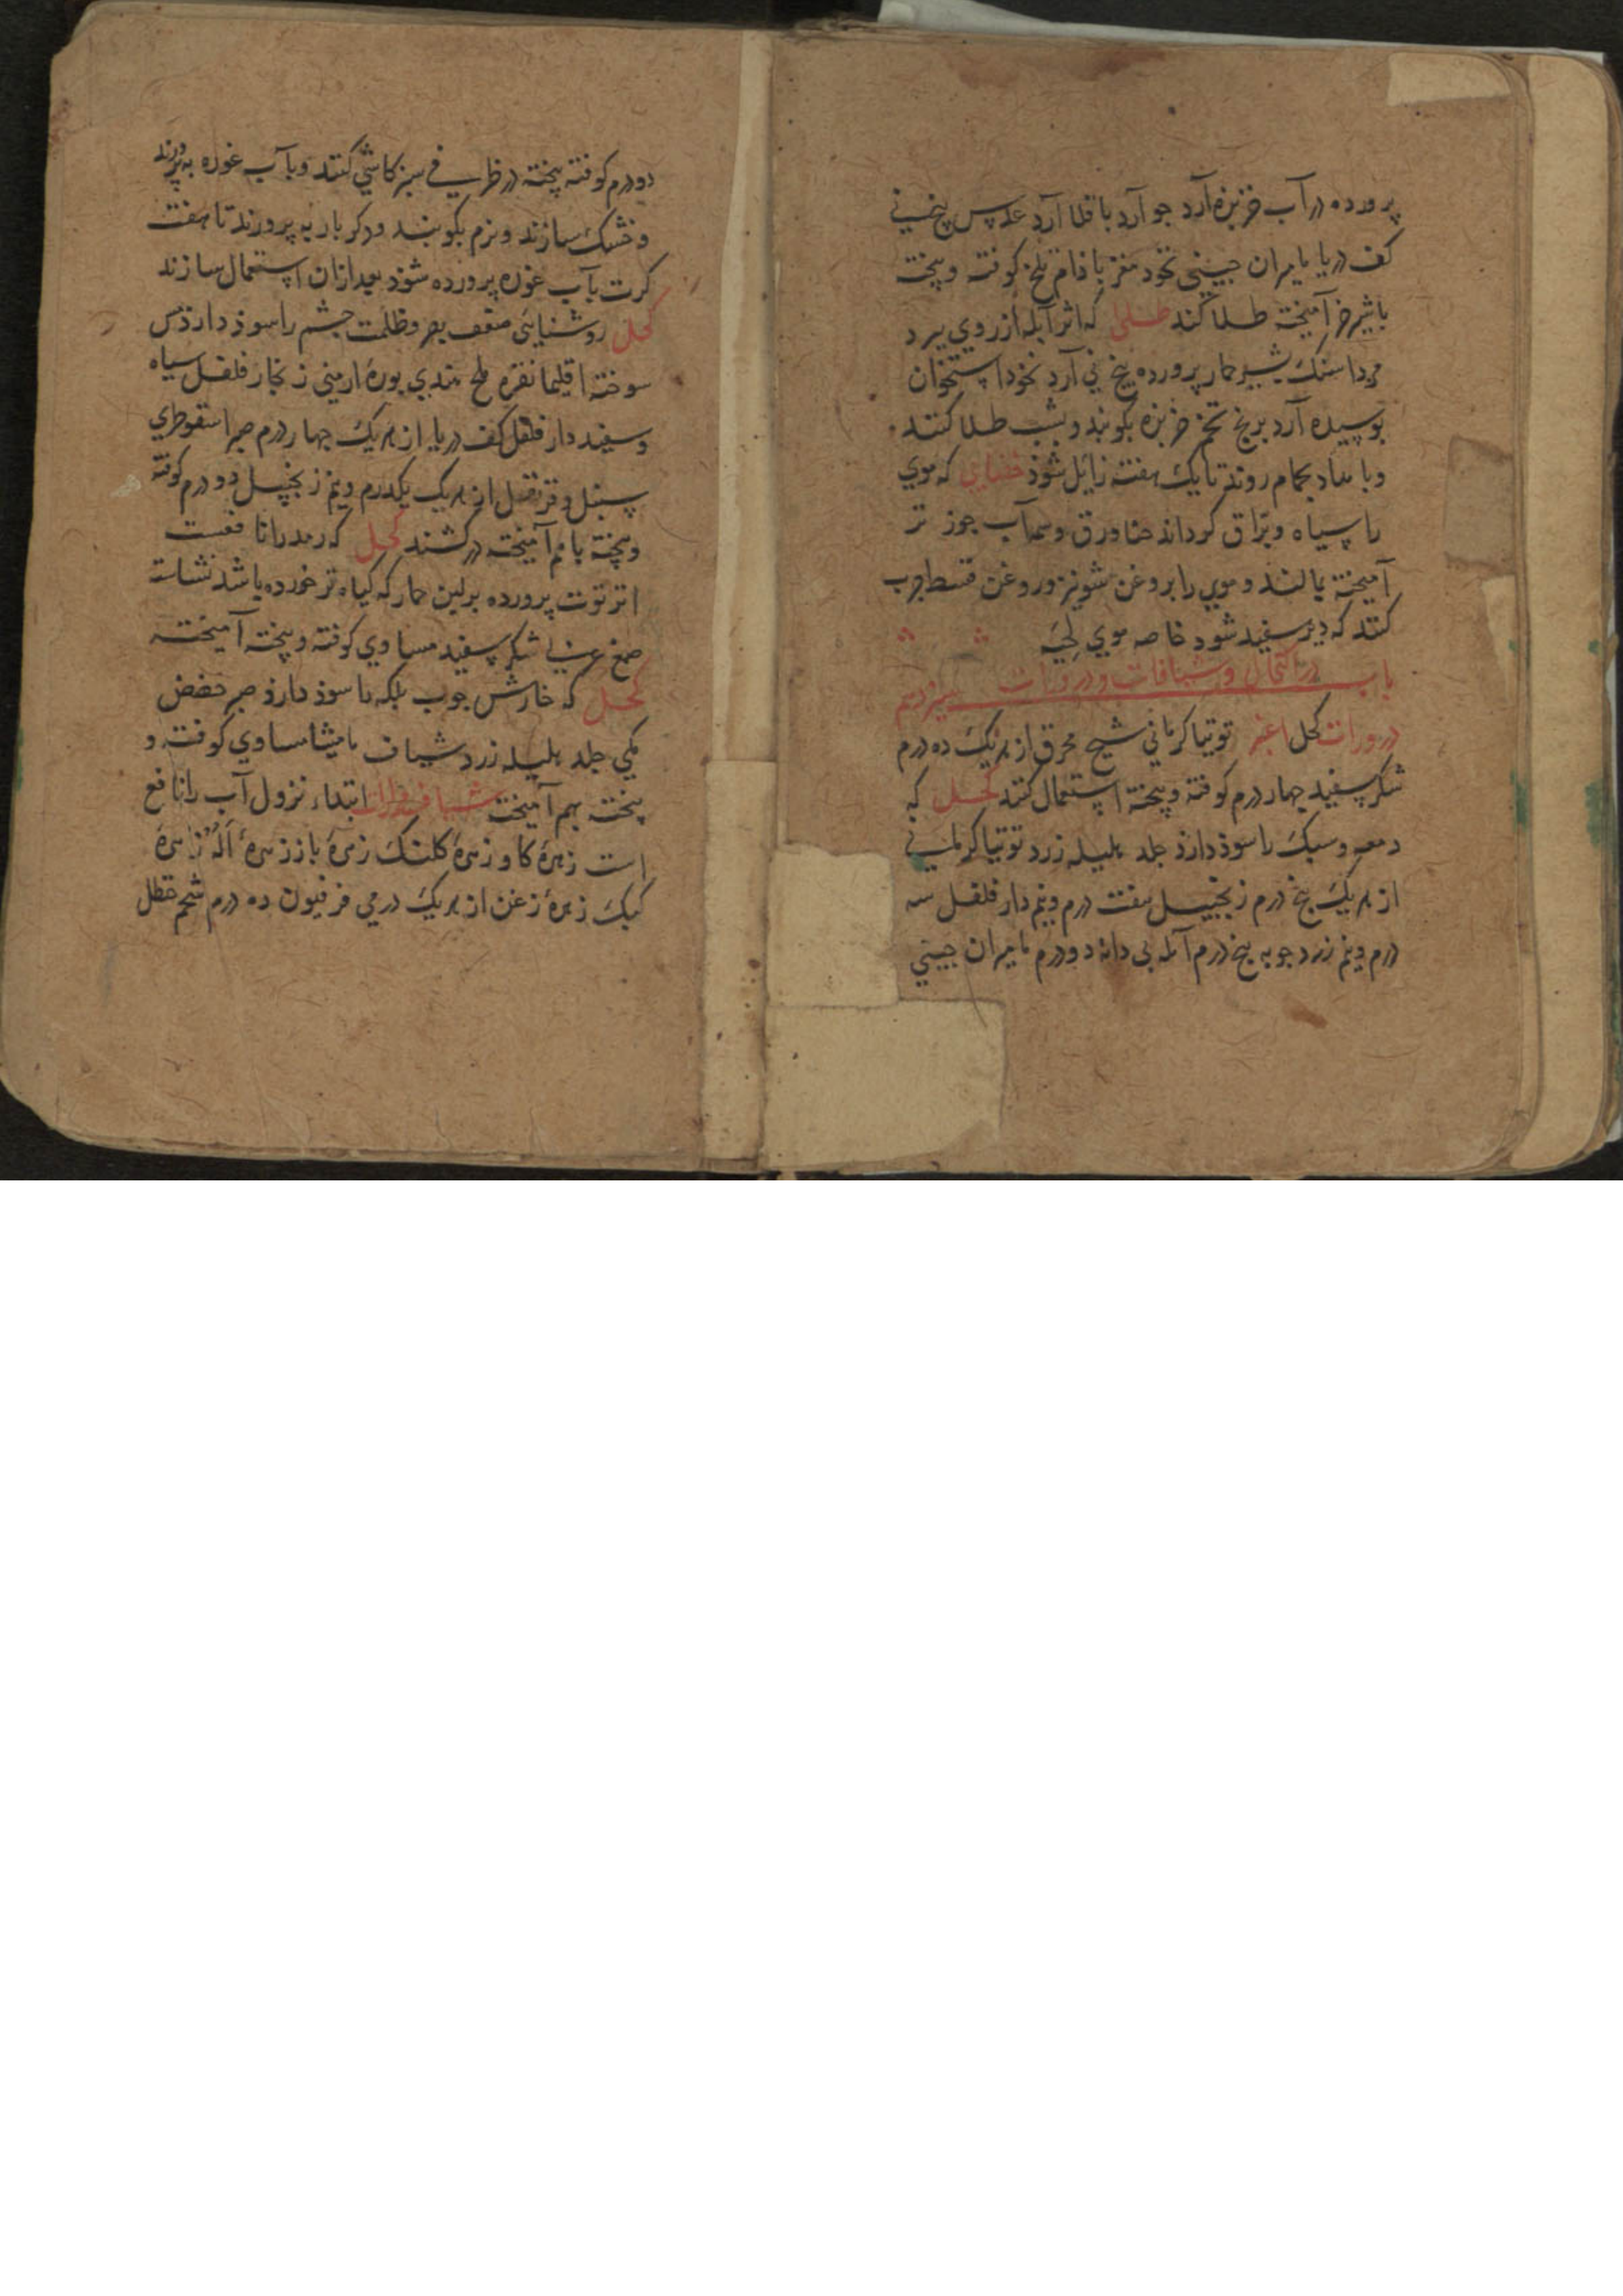 پرورده در آب خربزه آرد جو آرد باقلا آرد عدس بیخ نی
کف دریا مامیران چینی نخود مغز باذام تلخ کوفته و پیخته
با شیر خر آمیخته طلا کنند طلی که اثر آبله از روی ببرد
مرداسنک بشیر حمار پرورده بیخ نی آرد نخود استخوان
بوسیده آرد برنج تخم خربزه بکوبند و بشب طلا کنند
و بامداد بحمام روند تا یک هفته زایل شوذ خضابی که موی
را سیاه و برّاق کرداند حنا ورق وسمه آب جوز تر
آمیخته بمالند و موی را بروغن شونیز و روغن قسط چرب
کنند که دیر سفید شود خاصه موی لحیه
باب در اکحال و شیافات و ذرورات سیزدهم
ذرورات کحل اغبر توتیا کرمانی شیح محرق از هریک ده درم
شکر سفید چهار درم کوفته و پیخته استعمال کنند کحل که
دمعه و سبک را سوذ دارذ جلد هلیله زرد توتیا کرمانی
از هریک پنج درم زنجبیل هفت درم و نیم دار فلفل سه
درم و نیم زرد جوبه پنج درم آمله بی دانه دو درم مامیران چینی
دو درم کوفته پیخته در ظرفی سبز کاشی کنند و با آب غوره به پرورند
و خشک سازند و نرم بکوبند و دکر بار به پرورند تا هفت
کرت بآب غوره پرورده شوذ بعد ازان استعمال سازند
کحل روشنایی ضعف بصر و ظلمت چشم را سوذ دارذ مس
سوخته اقلیما نقره ملح هندی بورهٔ ارمنی زنجار فلفل سیاه
و سفید دار فلفل کف دریا از هریک چهار درم صبر اسقوطری
سنبل و قرنفل از هریک یکدرم و نیم زنجبیل دو درم کوفته
و پیخته با هم آمیخته در کشند کحل که رمد را نافعست
انزروت پرورده برلبن حمار که کیاه تر خورده باشد نشاسته
صمغ عربی شکر سفید مساوی کوفته و پیخته آمیخته
کحل که خارش جوب بلکه را سوذ دارذ صبر حضض
مکی جلد هلیله زرد شیاف مامیثا مساوی کوفته و
پیخته بهم آمیخته شیاف مرارات ابتداء نزول آب را نافع
است زهرهٔ کاو زهرهٔ کلنک زهرهٔ باز زهرهٔ اَلُه زهرهٔ
کبک زهرهٔ زغن از هریک درمی فرفیون ده درم شحم حنظل